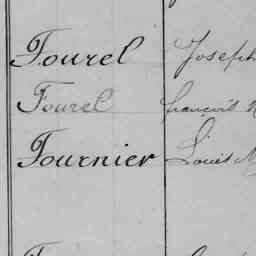 Fourel Joseph
Fourel françois
Fournier Louis